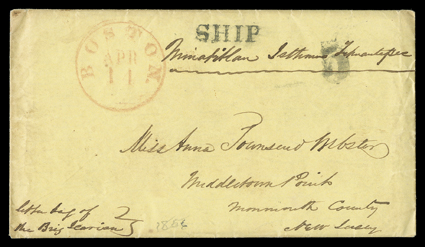 SHIP
BOSTON
APR
11
Minatitlan Isthmus Tehuantepec
Miss Anna Townsend Webster
Middletown Point
Monmouth County
New Jersey
letter bag of
the Brig